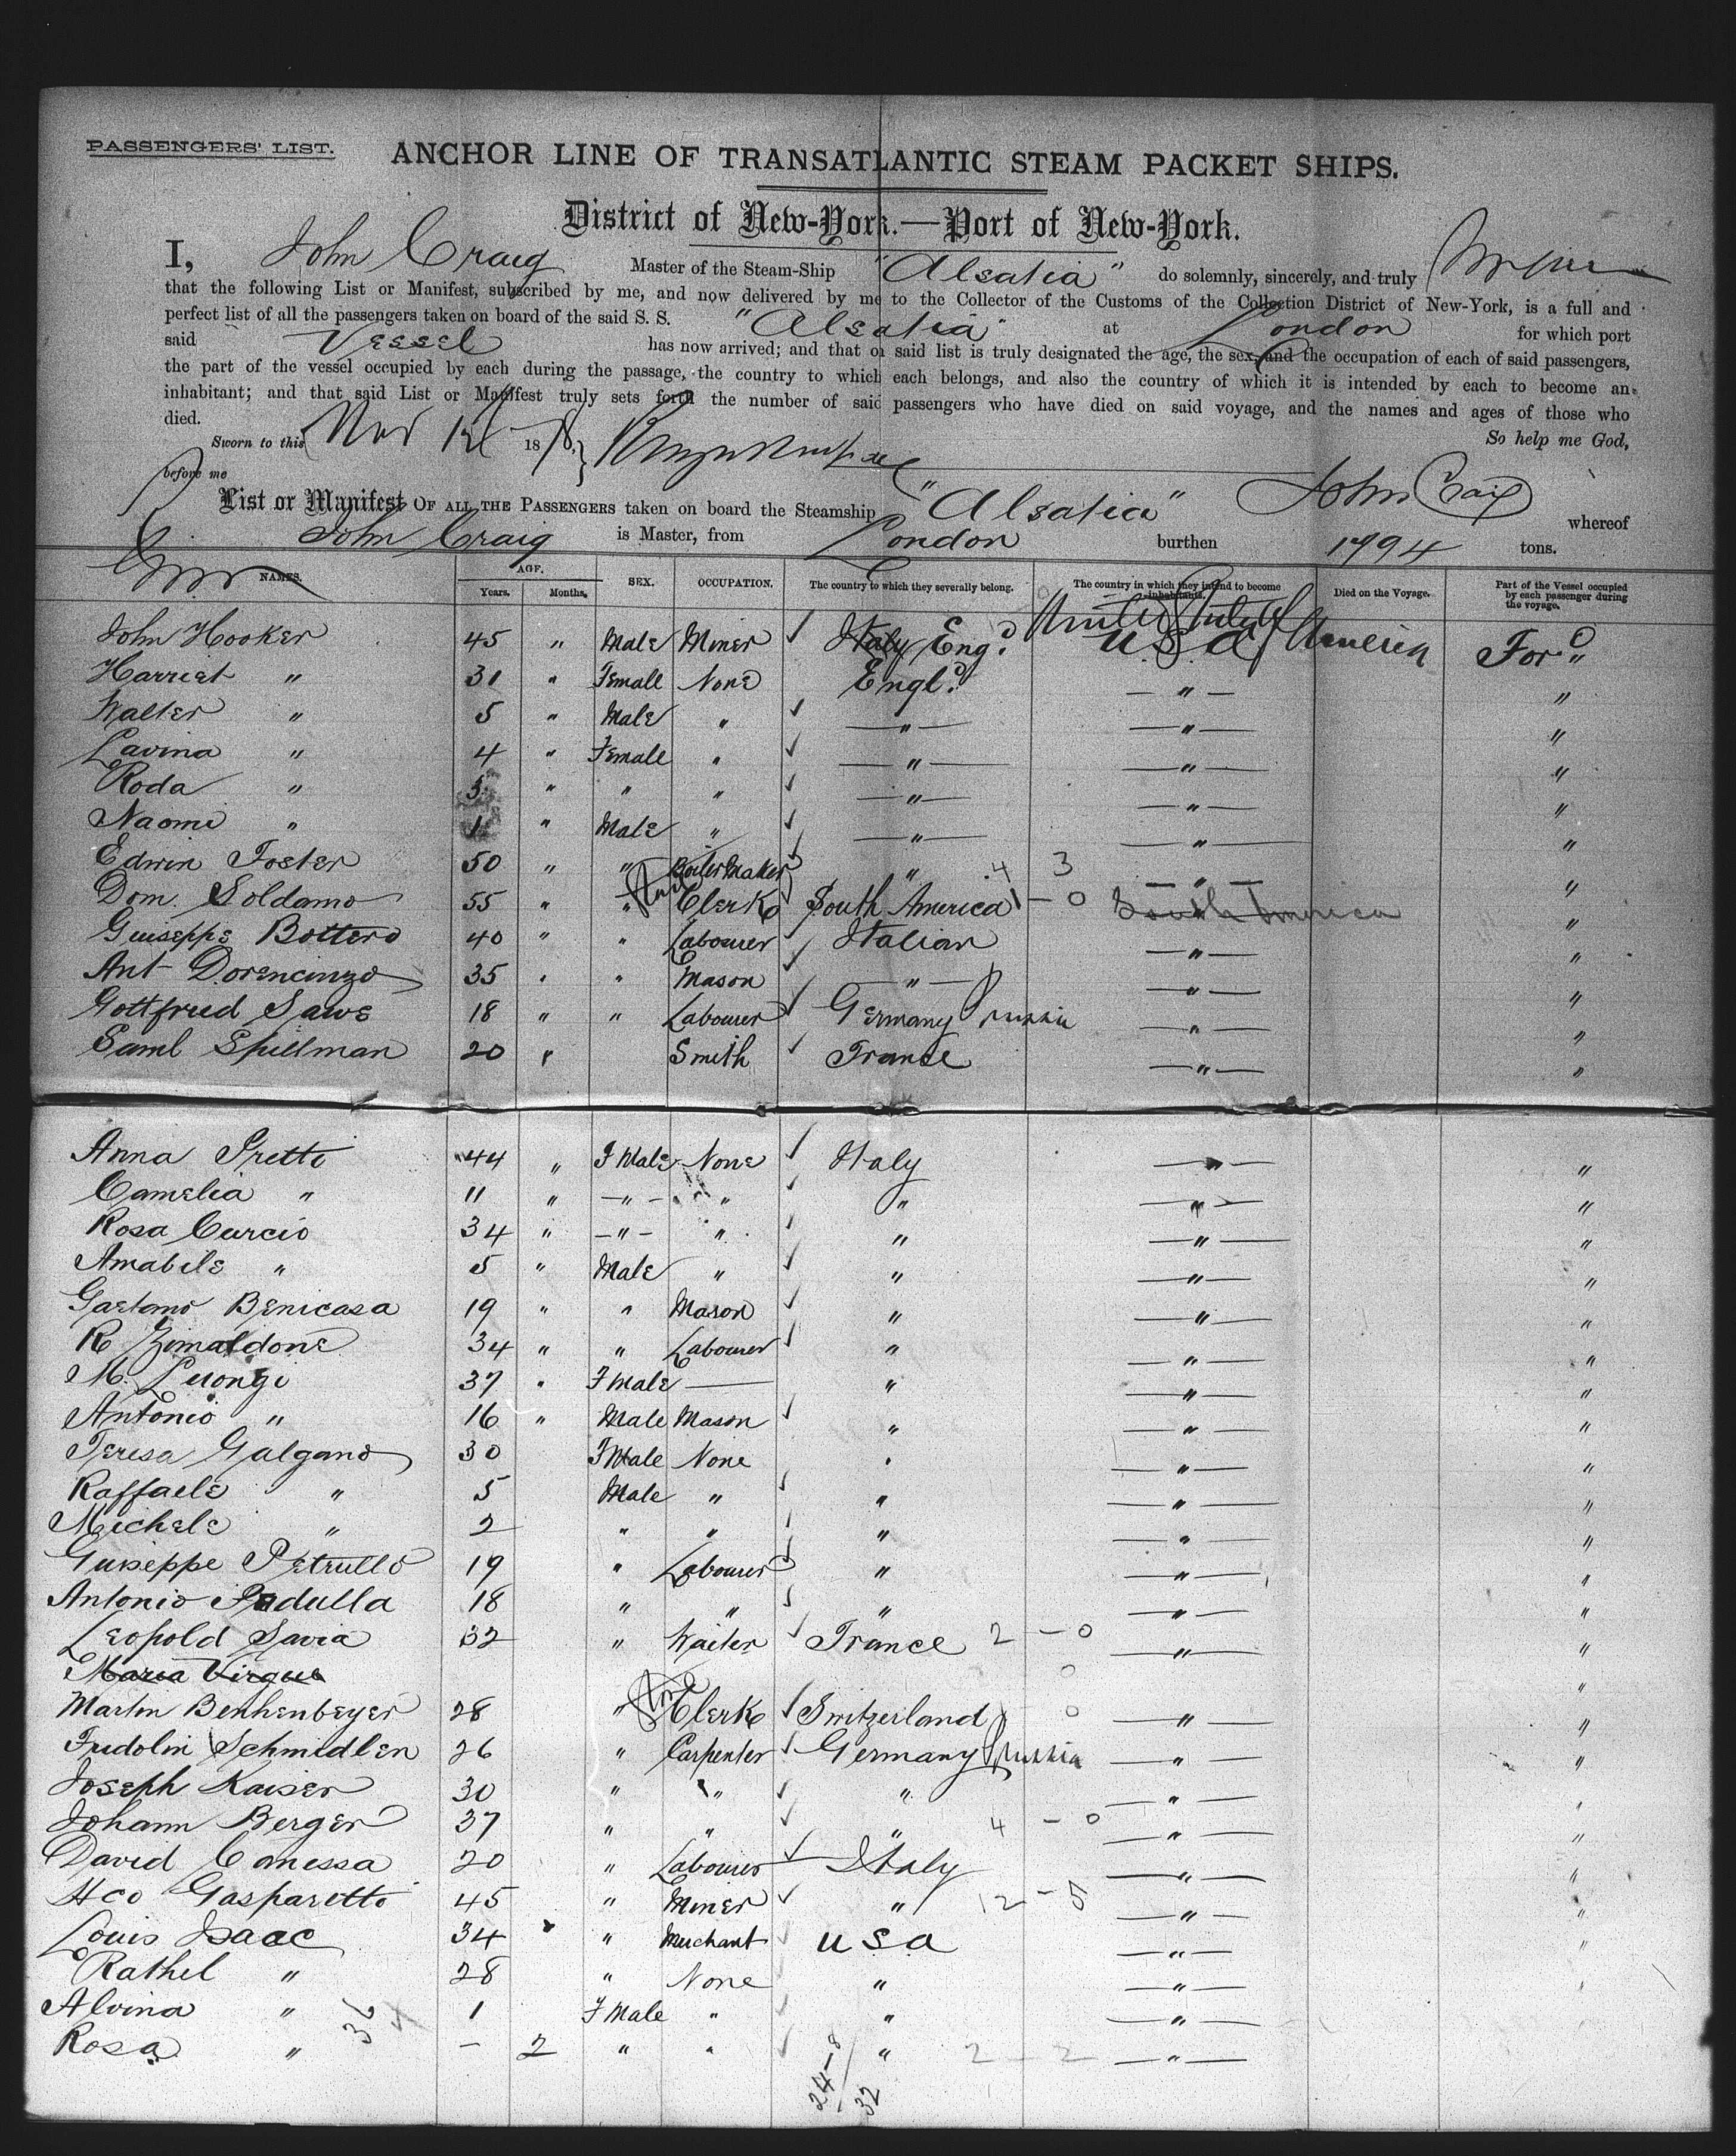 PASSENGERS' LIST.
ANCHOR LINE OF TRANSATLANTIC STEAM PACKET SHIPS.
District of New-York.—Port of New-York.
I, John Craig Master of the Steam-Ship "Alsatia" do solemnly, sincerely, and truly
that the following List or Manifest, subscribed by me, and now delivered by me to the Collector of the Customs of the Collection District of New-York, is a full and
perfect list of all the passengers taken on board of the said S. S. "Alsatia" at London for which port
said Vessel has now arrived; and that on said list is truly designated the age, the sex, and the occupation of each of said passengers,
the part of the vessel occupied by each during the passage, the country to which each belongs, and also the country of which it is intended by each to become an
inhabitant; and that said List or Manifest truly sets forth the number of said passengers who have died on said voyage, and the names and ages of those who
died.
So help me God,
Sworn to this Nov 12 1878,
before me
John Craig
List or Manifest OF ALL THE PASSENGERS taken on board the Steamship "Alsatia" whereof
John Craig is Master, from London burthen 1794 tons.
NAMES. AGE. Years. Months. SEX. OCCUPATION. The country to which they severally belong. The country in which they intend to become inhabitants. Died on the Voyage. Part of the Vessel occupied by each passenger during the voyage.
United States of America
John Hooker 45 " Male Miner ✓ Italy Engd. U.S.A For.d
Harriet " 31 " Female None Engld. — " — "
Walter " 5 " Male " ✓ — " — — " — "
Lavina " 4 " Female " ✓ — " — — " — "
Roda " 3 " " " ✓ — " — — " — "
Naomi " 1 " Male " ✓ — " — — " — "
Edwin Foster 50 " " Boiler Maker ✓ " 4 3 — " — "
Dom. Soldamo 55 " " Clerk South America 1 - 0 South America "
Guiseppe Bottero 40 " " Labourer ✓ Italian — " — "
Ant Dorencinzo 35 " " Mason ✓ — " — — " — "
Gottfried Sawe 18 " " Labourer ✓ Germany Prussia — " — "
Saml Spillman 20 " Smith ✓ France — " — "
Anna Pretti 44 " F Male None ✓ Italy — " — "
Camelia " 11 " — " — " ✓ " — " — "
Rosa Curcio 34 " — " — " ✓ " — " — "
Amabile " 5 " Male " ✓ " — " — "
Gaetano Benicasa 19 " " Mason ✓ " — " — "
R Zimaldone 34 " " Labourer ✓ " — " — "
M. Luongi 37 " F Male — " — " — "
Antonio " 16 " Male Mason ✓ " — " — "
Teresa Galgano 30 F Male None " — " — "
Raffaele " 5 Male " ✓ " — " — "
Michele " 2 " " ✓ " — " — "
Guiseppe Petrullo 19 " Labourer ✓ " — " — "
Antonio Padulla 18 " " ✓ " — " — "
Leopold Savia 32 " Waiter ✓ France 2 - 0 — " — "
Maria Virgue 0 "
Martin Benhenbeyer 28 " Clerk ✓ Switzerland 0 — " — "
Fridolin Schmidlen 26 " Carpenter ✓ Germany Prussia — " — "
Joseph Kaiser 30 " " ✓ " — " — "
Johann Berger 37 " " ✓ " 4 - 0 — " — "
David Canessa 20 " Labourer ✓ Italy — " — "
Gasparetto 45 " Miner ✓ " 12 - 5 — " — "
Louis Isaac 34 " " Merchant ✓ U S A — " — "
Rathel " 28 " None " — " — "
Alvina " 1 F Male " ✓ " — " — "
Rosa " — 2 " " ✓ " 2 - 2 — " —
36
4
24-8
32